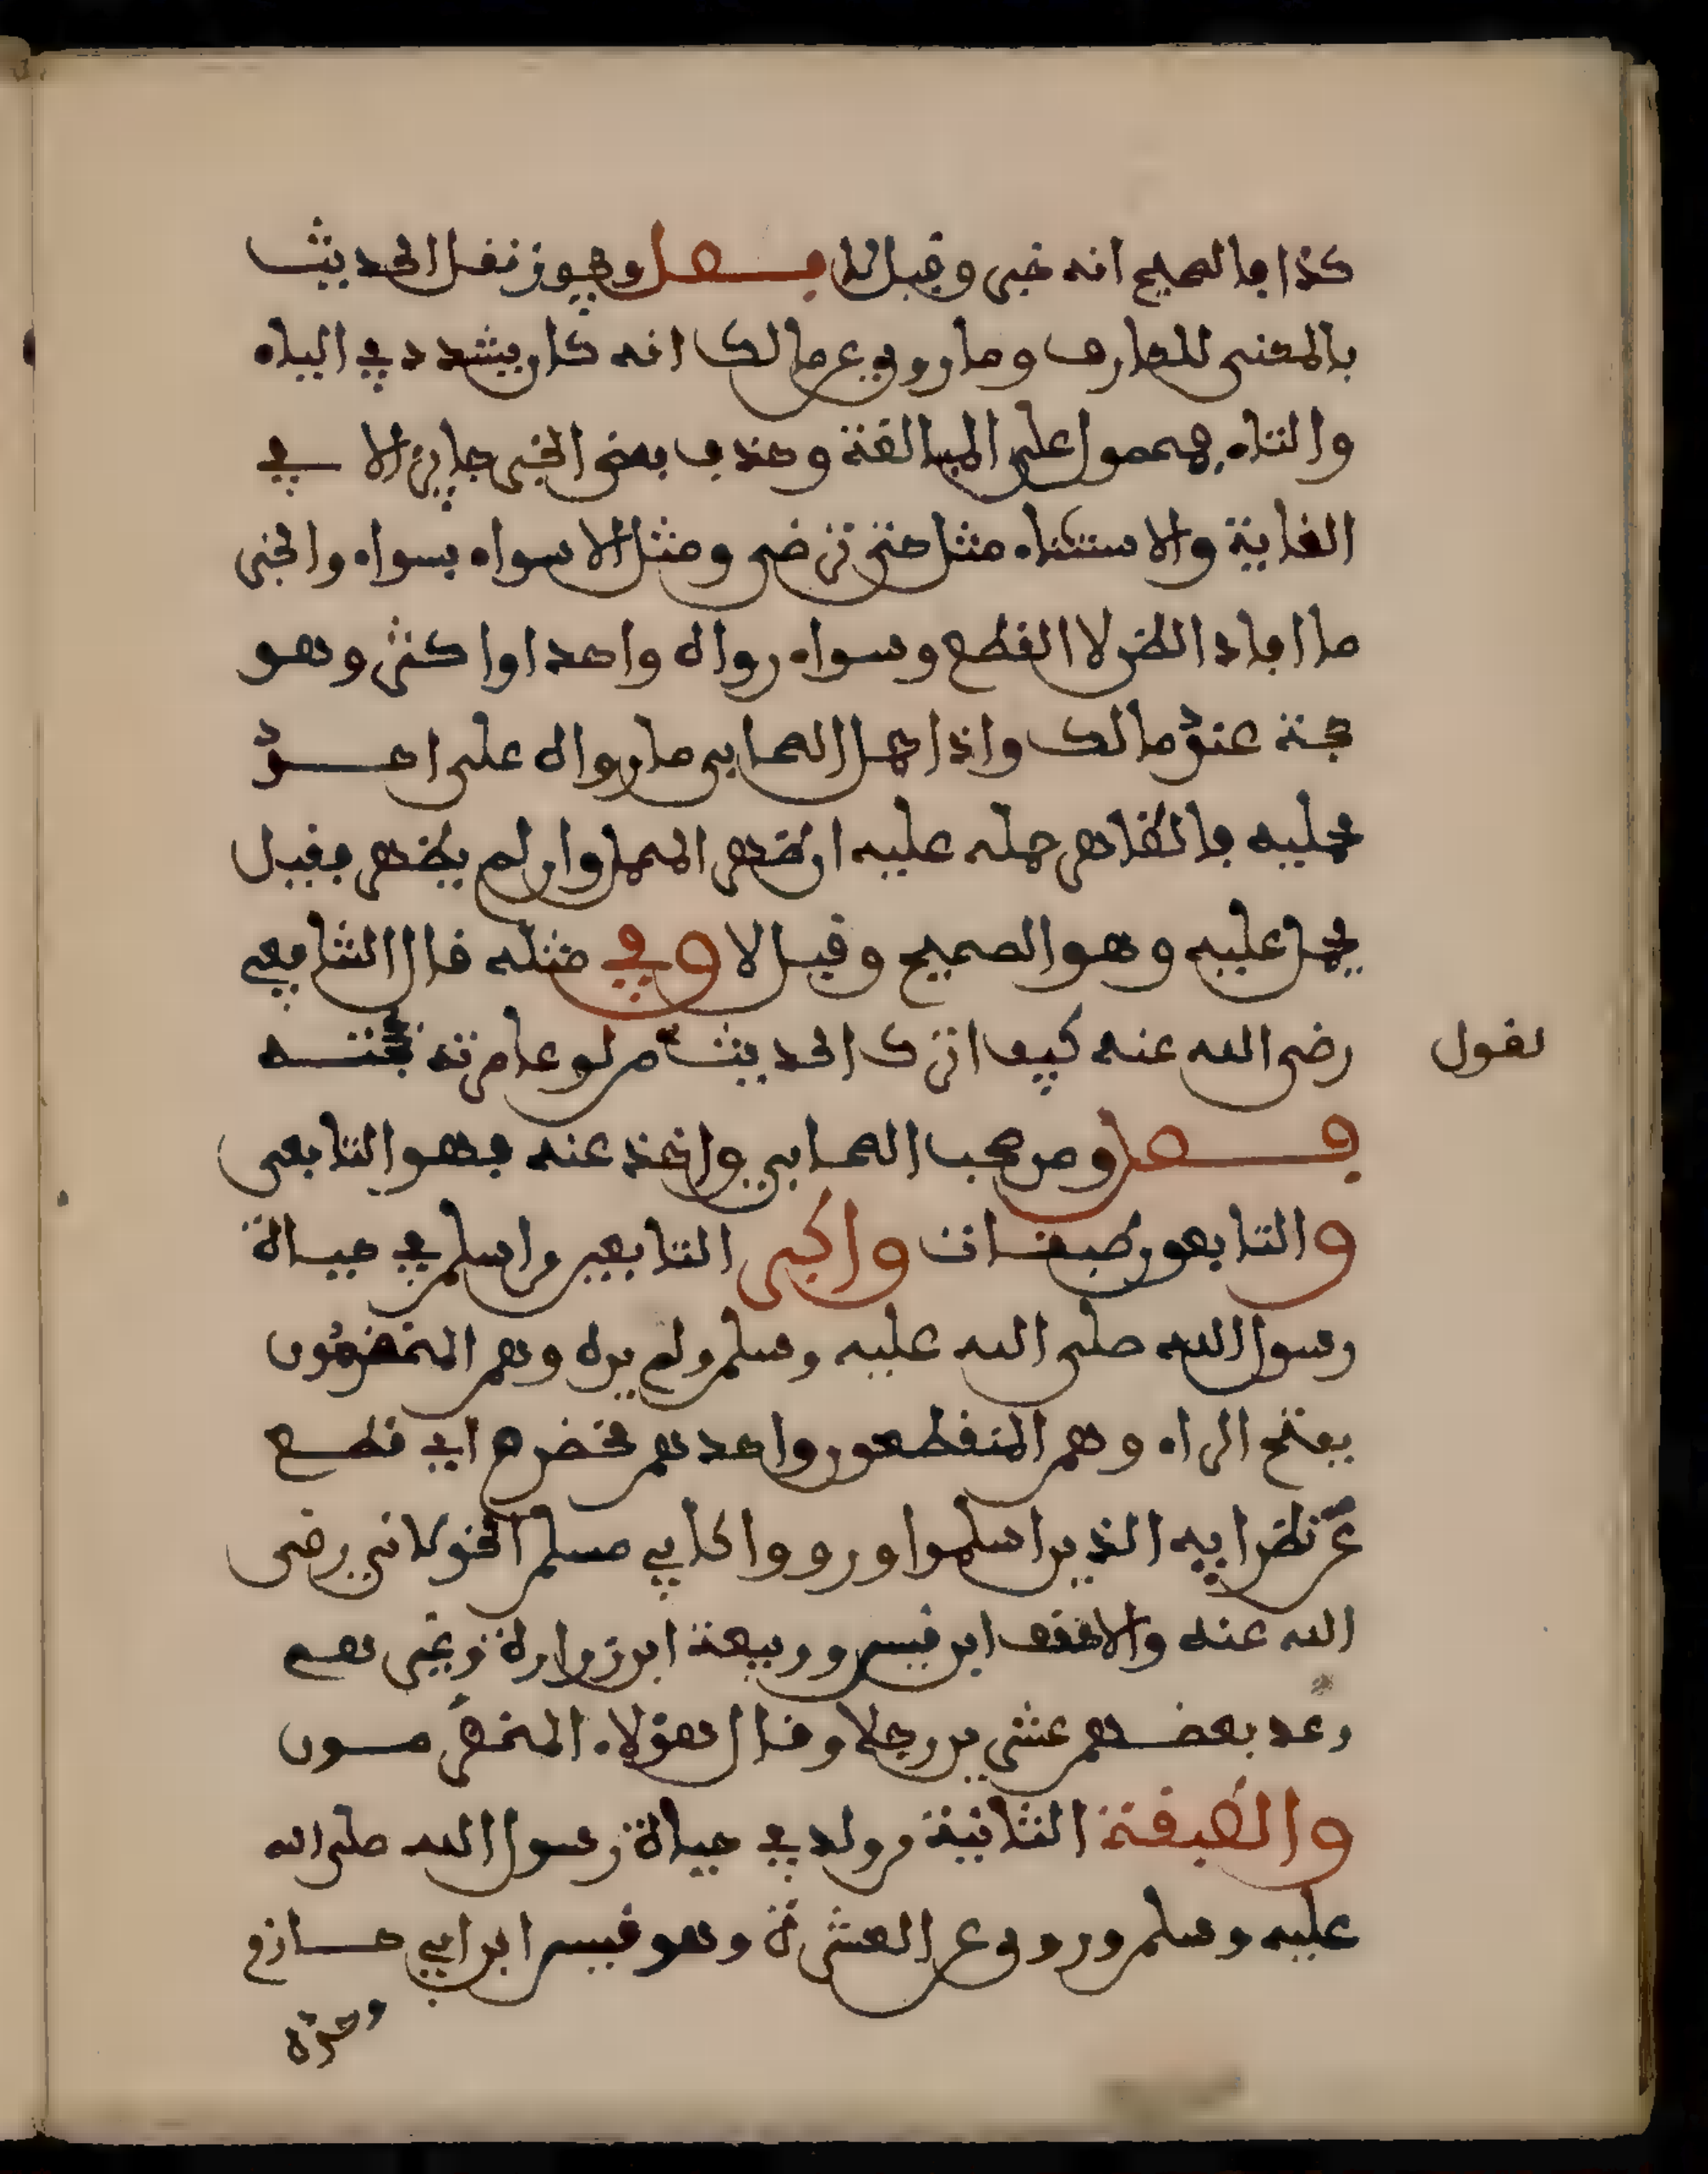 كذا فالصحيح انه خبر وقيل لا فصل ويجوز نقل الحديث
بالمعنى للعارف وما روي عن مالك انه كان يشدد في الياء
والتاء فمحمول على المبالغة وحذف بعض الخبر جايز الا في
الغاية والاستثناء مثل حتى تزهى ومثل الا سواء بسواء والخبر
ما افاد الظن لا القطع وسواء رواه واحد او اكثر وهو
حجة عند مالك واذا حمل الصحابي ما رواه على احد
محمليه فالظاهر حمله عليه ان ظهر المحمل وان لم يظهر فقيل
يحمل عليه وهو الصحيح وقيل لا وفي مثله قال الشافعي
رضي الله عنه كيف اترك الحديث من لو عاصرته لحججته
لقول
فصل ومن صحب الصحابي واخذ عنه فهو التابعي
والتابعون طبقات واكبر التابعين من اسلم في حياة
رسول الله صلى الله عليه وسلم ولم يره وهم المخضرمون
بفتح الراء وهم المنقطعون واحدهم مخضرم اي قطع
عن نظرايه الذين اسلموا ورووا كابي مسلم الخولاني رضي
الله عنه والاحنف ابن قيس وربيعة ابن زرارة وغيرهم
وعد بعضهم عشرين رجلا وقال هؤلاء المخضرمون
والطبقة الثانية من ولد في حياة رسول الله صلى الله
عليه وسلم وروى عن العشرة وهو قيس ابن ابي حازم